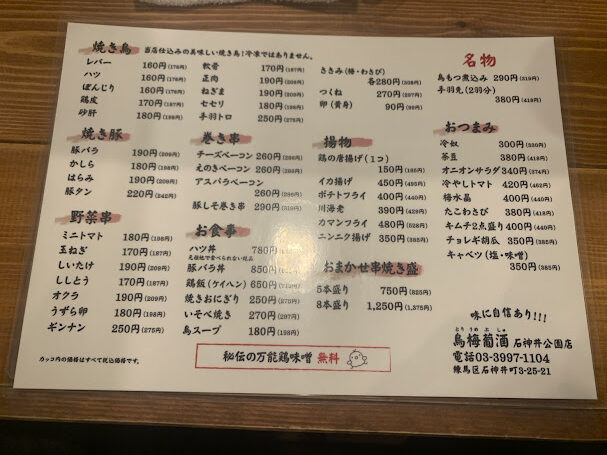 焼き鳥 当店仕込みの美味しい焼き鳥!冷凍ではありません。
レバー 160円(176円)
ハツ 160円(176円)
ぼんじり 160円(176円)
鶏皮 170円(187円)
砂肝 180円(198円)
軟骨 170円(187円)
正肉 190円(209円)
ねぎま 190円(209円)
セセリ 180円(198円)
手羽トロ 250円(275円)
ささみ(梅・わさび)
各280円(308円)
つくね 270円(297円)
卵(黄身) 90円(99円)
名物
鳥もつ煮込み 290円(319円)
手羽先(2羽分)
380円(418円)
焼き豚
豚バラ 190円(209円)
かしら 180円(198円)
はらみ 190円(209円)
豚タン 220円(242円)
巻き串
チーズベーコン 260円(286円)
えのきベーコン 260円(286円)
アスパラベーコン
260円(286円)
豚しそ巻き串 290円(319円)
揚物
鶏の唐揚げ(1コ)
150円(165円)
イカ揚げ 450円(495円)
ポテトフライ 400円(440円)
川海老 390円(429円)
カマンフライ 480円(528円)
ニンニク揚げ 350円(385円)
おつまみ
冷奴 300円(330円)
茶豆 380円(418円)
オニオンサラダ 340円(374円)
冷やしトマト 420円(462円)
梅水晶 400円(440円)
たこわさび 380円(418円)
キムチ2点盛り 400円(440円)
チョレギ胡瓜 350円(385円)
キャベツ(塩・味噌)
350円(385円)
野菜串
ミニトマト 180円(198円)
玉ねぎ 170円(187円)
しいたけ 190円(209円)
ししとう 170円(187円)
オクラ 190円(209円)
うずら卵 180円(198円)
ギンナン 250円(275円)
お食事
ハツ丼 780円
豚バラ丼 850円
鶏飯(ケイハン) 650円
焼きおにぎり 250円(275円)
いそべ焼き 270円(297円)
鳥スープ 180円(198円)
おまかせ串焼き盛
5本盛り 750円(825円)
8本盛り 1,250円(1,375円)
カッコ内の価格はすべて税込価格です。
秘伝の万能鶏味噌 無料
味に自信あり!!!
とりうめぶしゅ
鳥梅葡酒 石神井公園店
電話03-3997-1104
練馬区石神井町3-25-21